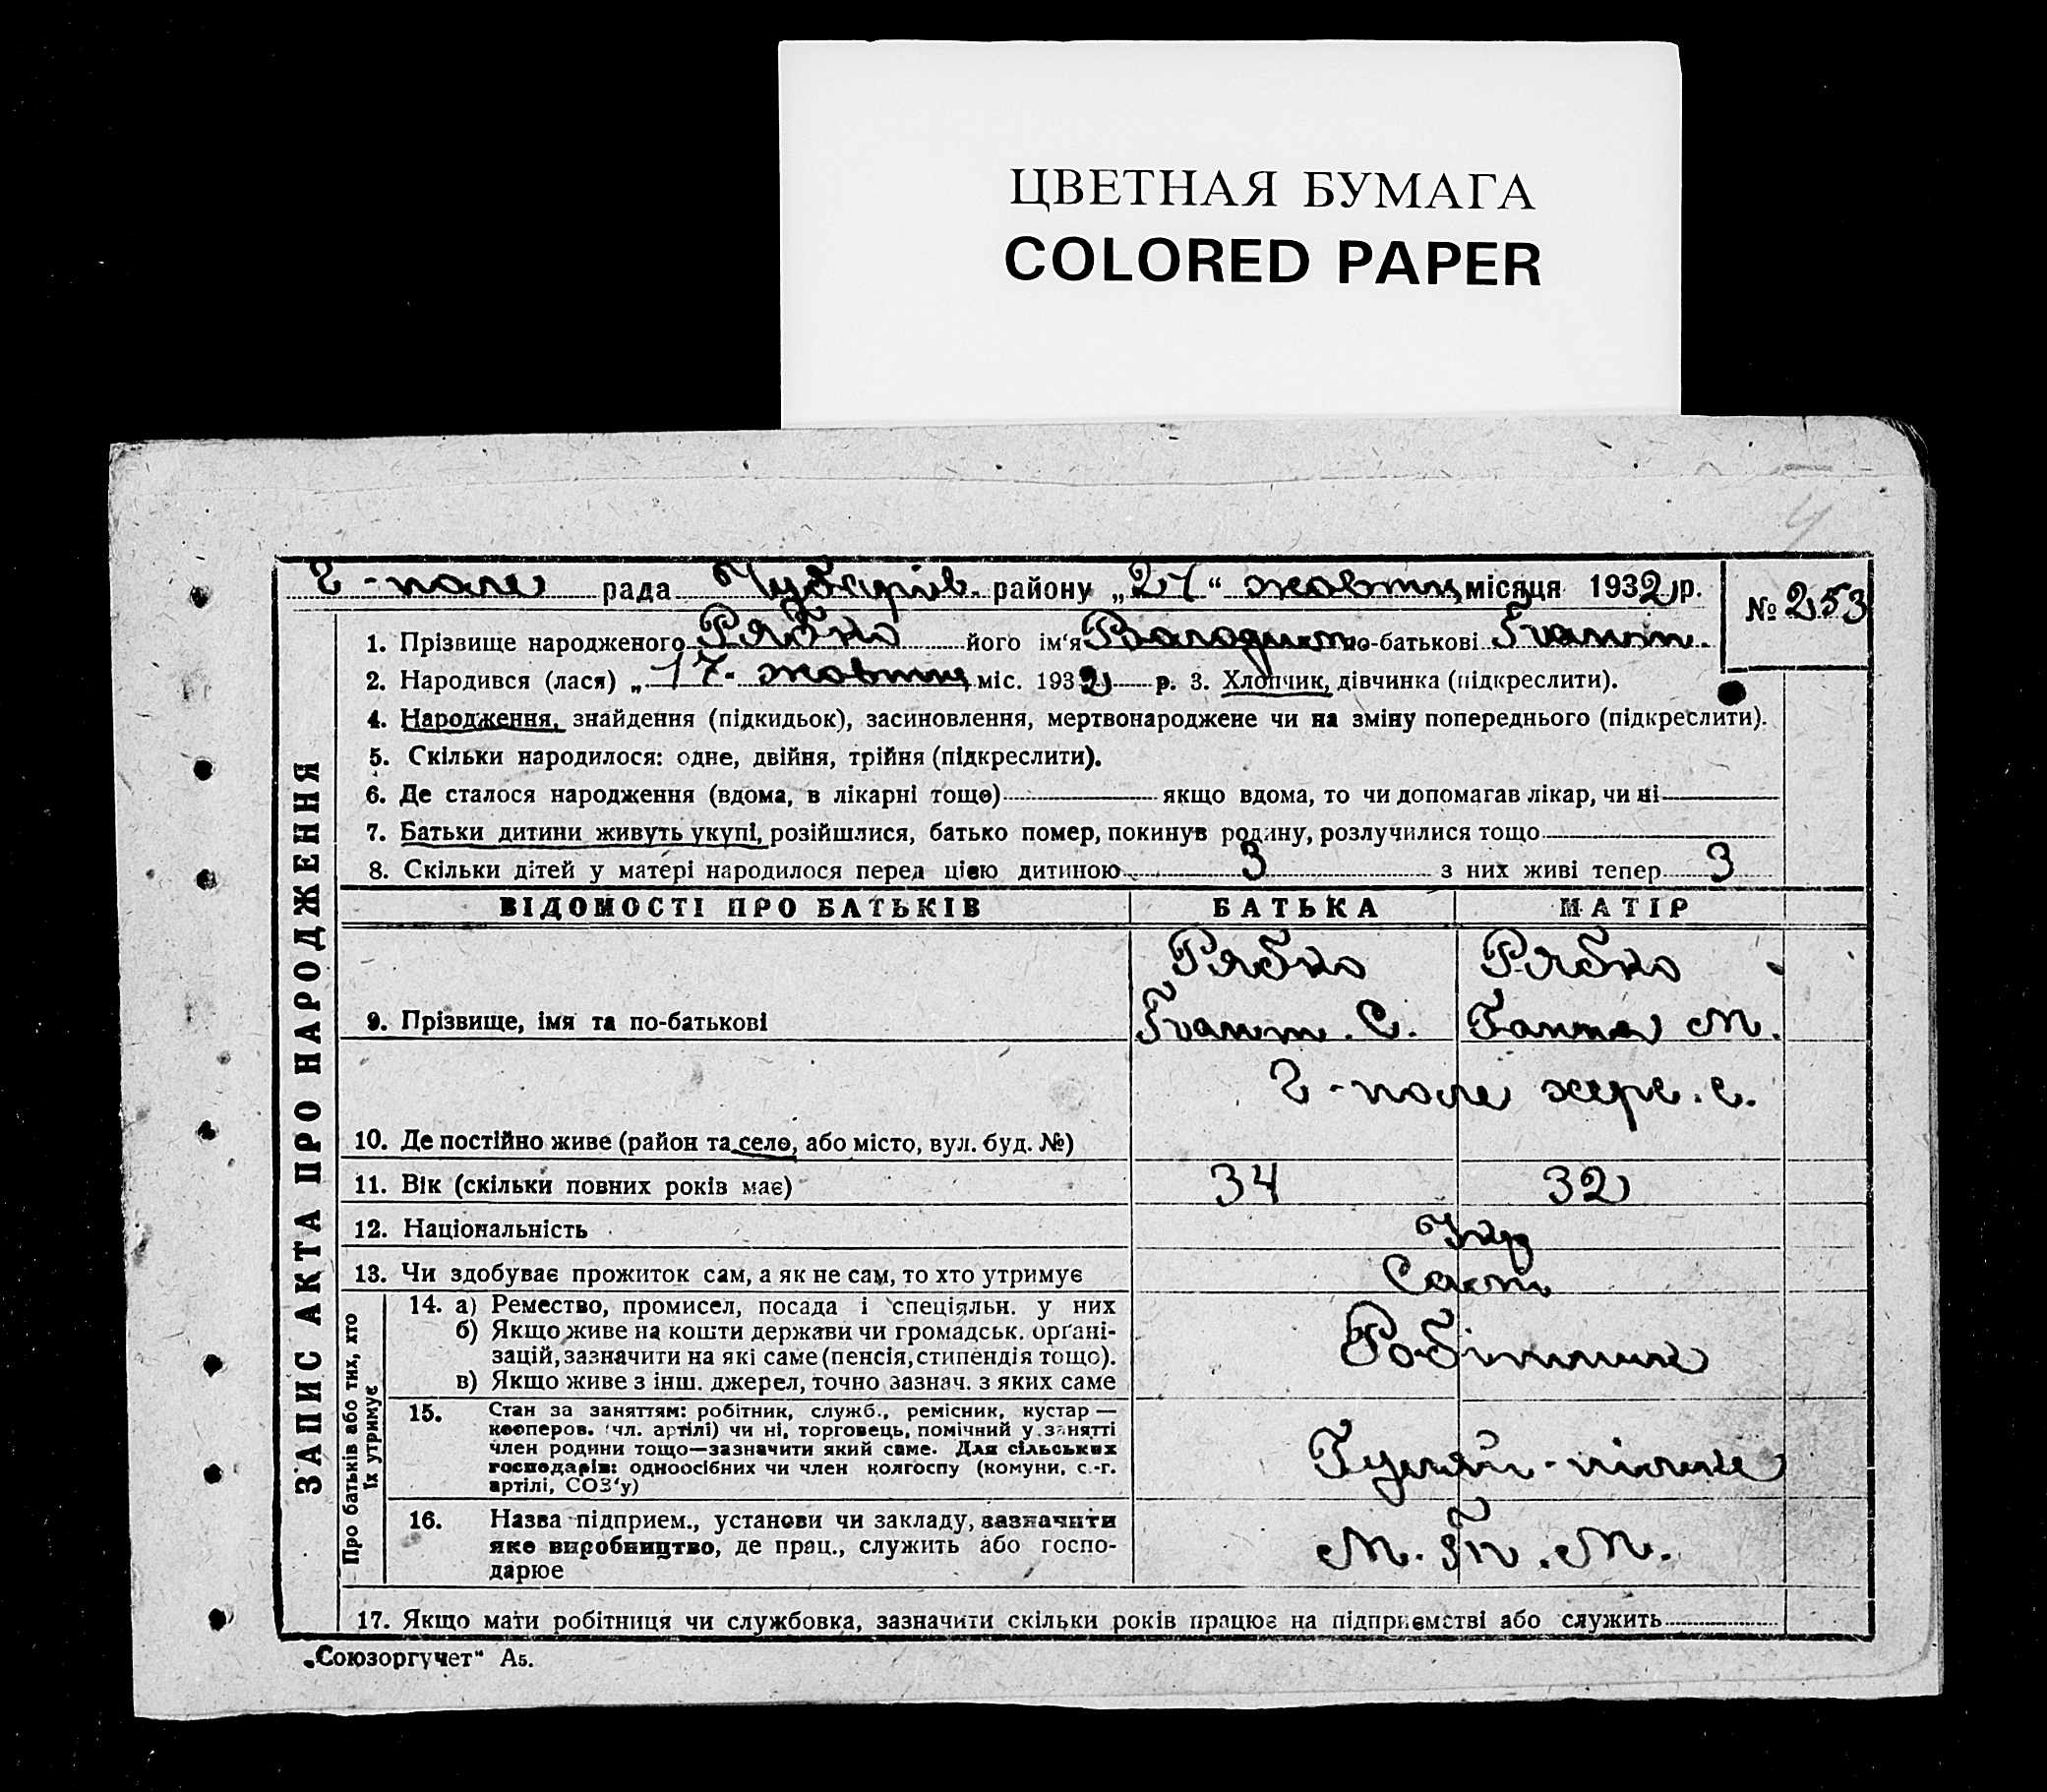 ЦВЕТНАЯ БУМАГА
COLORED PAPER
Г-поле рада Чубарів. району „27“ жовтня місяця 1932 р.
№ 253
ЗАПИС АКТА ПРО НАРОДЖЕННЯ
1. Прізвище народженого Рябко його ім'я Володим по-батькові Іванов.
2. Народився (лася) „17- жовтня міс. 1932 р. 3. Хлопчик, дівчинка (підкреслити).
4. Народження, знайдення (підкидьок), засиновлення, мертвонароджене чи на зміну попереднього (підкреслити).
5. Скільки народилося: одне, двійня, трійня (підкреслити).
6. Де сталося народження (вдома, в лікарні тощо) якщо вдома, то чи допомагав лікар, чи ні
7. Батьки дитини живуть укупі, розійшлися, батько помер, покинув родину, розлучилися тощо
8. Скільки дітей у матері народилося перед цією дитиною 3 з них живі тепер 3
ВІДОМОСТІ ПРО БАТЬКІВ БАТЬКА МАТІР
Рябко Рябко
9. Прізвище, імя та по-батькові Іван С. Ганна М.
Г-поле
10. Де постійно живе (район та село, або місто, вул. буд. №)
11. Вік (скільки повних років має) 34 32
12. Національність Укр
13. Чи здобуває прожиток сам, а як не сам, то хто утримує Сам
Про батьків або тих, хто
їх утримує
14. а) Ремество, промисел, посада і спеціяльн. у них
б) Якщо живе на кошти держави чи громадськ. орґані-
зацій, зазначити на які саме (пенсія, стипендія тощо).
в) Якщо живе з інш. джерел, точно зазнач. з яких саме
Робітник
15. Стан за заняттям: робітник, служб., ремісник, кустар —
кооперов. (чл. артілі) чи ні, торговець, помічний у занятті
член родини тощо—зазначити який саме. Для сільських
господарів: одноосібних чи член колгоспу (комуни, с.-г.
артілі, СОЗ'у)
16. Назва підприєм., установи чи закладу, зазначити
яке виробництво, де прац., служить або госпо-
дарює
17. Якщо мати робітниця чи службовка, зазначити скільки років працює на підприємстві або служить
„Союзоргучет“ А5.